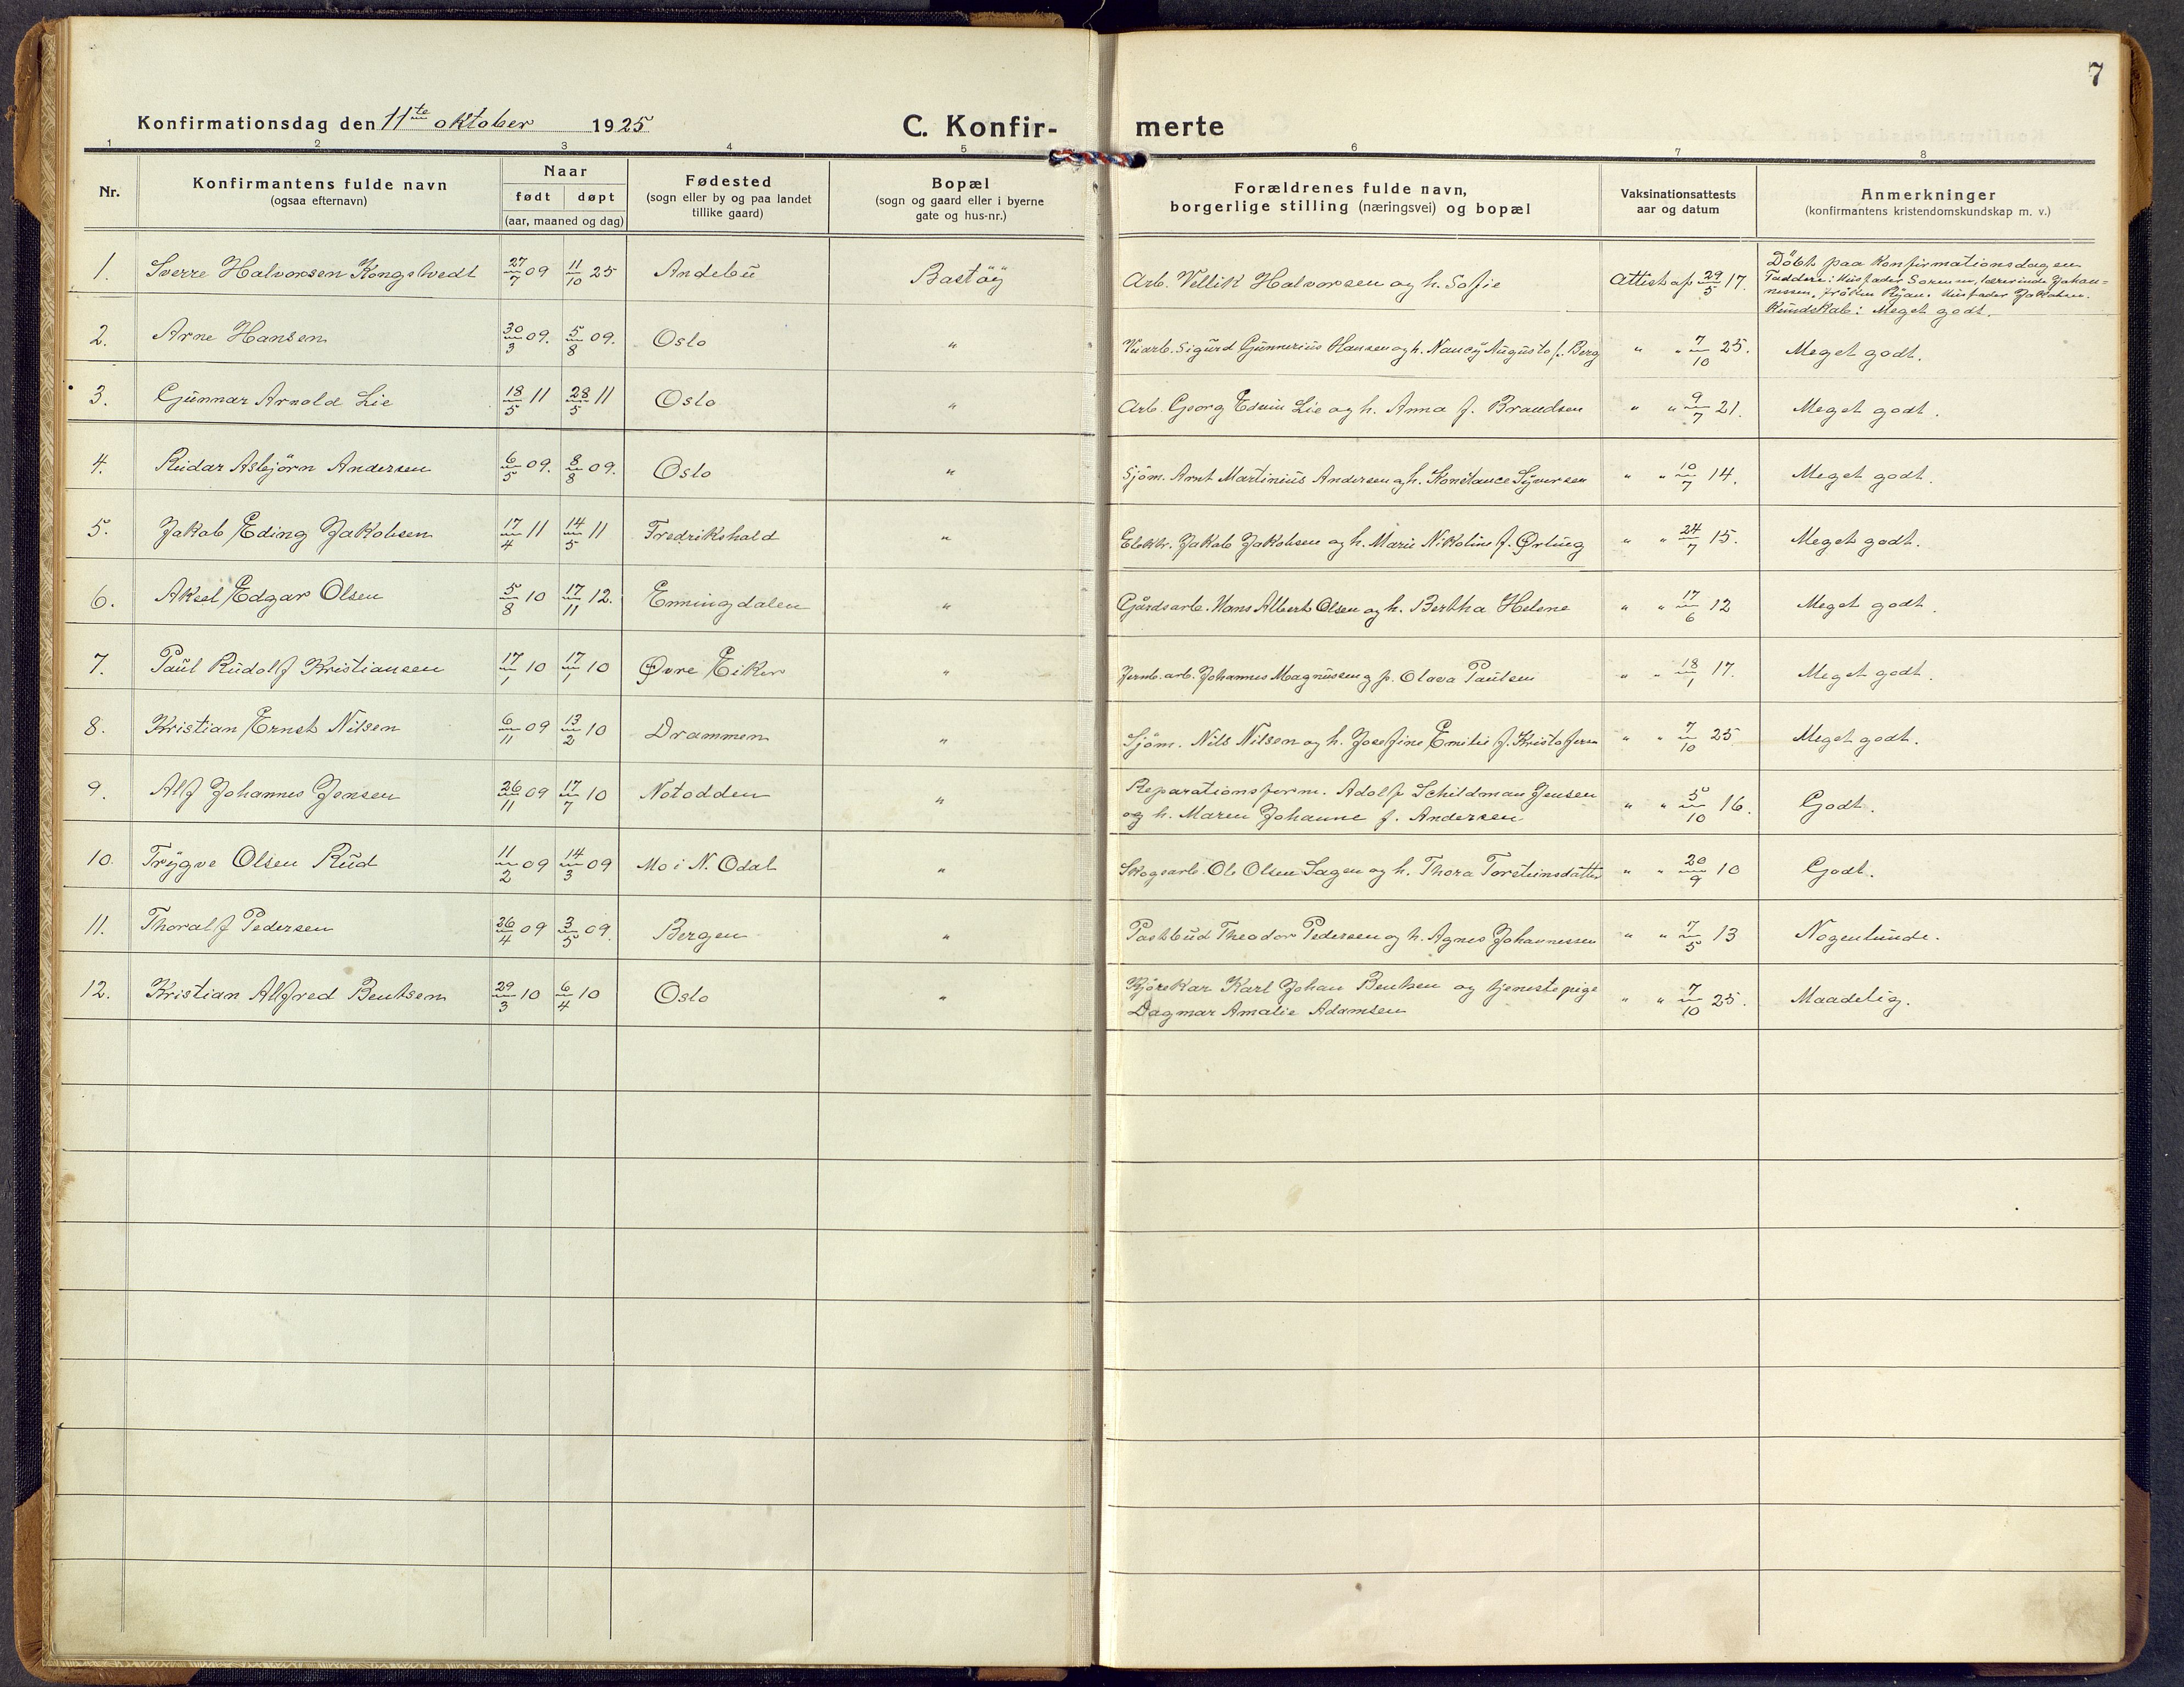 7
Konfirmationsdag den 11te oktober 1925
C. Konfir-
merte
1 2 3 4 5 6 7 8
Nr.
Konfirmantens fulde navn
(ogsaa efternavn)
Naar
født døpt
(aar, maaned og dag)
Fødested
(sogn eller by og paa landet
tillike gaard)
Bopæl
(sogn og gaard eller i byerne
gate og hus-nr.)
Forældrenes fulde navn,
borgerlige stilling (næringsvei) og bopæl
Vaksinationsattests
aar og datum
Anmerkninger
(konfirmantens kristendomskundskap m. v.)
1. Sverre Halvorsen Kongstvedt 27/7 09 11/10 25 Andebu Bastöy Arb. Vellik Halvorsen og h. Sofie Attest af 29/5 17.
Döbt paa Konfirmationsdagen
Faddere: Husfader Sörensen, lærerinde Johan-
nessen, fröken Ryan. Husfader Jakobsen.
Kundskab: Meget godt.
2. Arne Hansen 30/3 09. 5/8 09. Oslo " Veiarb. Sigurd Gunnerius Hansen og h. Nancy Augusta f. Berg " " 7/10 25. Meget godt.
3. Gunnar Arnold Lie 18/5 11 28/5 11 Oslo " Arb. Georg Edwin Lie og h. Anna f. Brandsen " " 9/7 21. Meget godt.
4. Reidar Asbjörn Andersen 6/5 09. 8/8 09. Oslo " Sjöm. Arnt Martinius Andersen og h. Konstance Syversen " " 10/7 14. Meget godt.
5. Jakob Eding Jakobsen 17/4 11 14/5 11 Fredrikshald " Elektr. Jakob Jakobsen og h. Marie Nikoline f. Ørbing " " 24/7 15. Meget godt.
6. Aksel Edgar Olsen 5/8 10 17/11 12. Enningdalen " Gårdsarb. Hans Albert Olsen og h. Bertha Helene " " 17/6 12 Meget godt.
7. Paul Rudolf Kristiansen 17/1 10 17/1 10 Øvre Eiker " Jernb. arb. Johannes Magnussen og p. Olava Paulsen " " 18/1 17. Meget godt.
8. Kristian Ernst Nilsen 6/11 09 13/2 10 Drammen " Sjöm. Nils Nilsen og h. Josefine Emilie f. Kristofersen " " 7/10 25 Meget godt.
9. Alf Johannes Jensen 26/11 09 17/7 10 Notodden " Reparationsform. Adolf Schildman Jensen
og h. Maren Johanne f. Andersen " " 5/10 16. Godt.
10. Trygve Olsen Rud 11/2 09 14/3 09 Mo i N. Odal " Skogsarb. Ole Olsen Sagen og h. Thora Torsteinsdatter " " 20/9 10 Godt.
11. Thoralf Pedersen 26/4 09 3/5 09. Bergen " Postbud Theodor Pedersen og h. Agnes Johannessen " " 7/5 13 Nogenlunde.
12. Kristian Alfred Bentsen 29/3 10 6/4 10 Oslo " Kjörekar Karl Johan Bentsen og tjenestepige
Dagmar Amalie Adamsen " " 7/10 25. Maadelig.